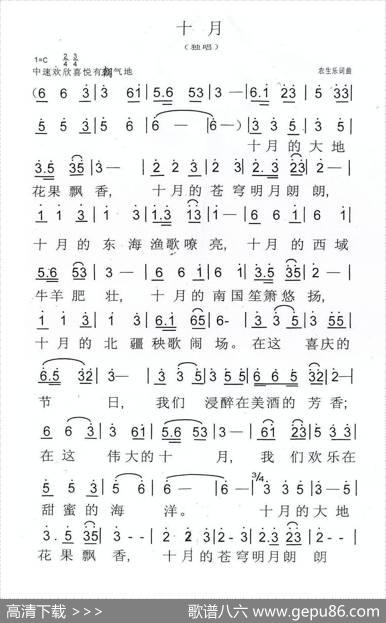 十月
（独唱）
1=C 2/4 3/4
中速欢欣喜悦有朝气地
农生乐词曲
(6 6 3 | 3 61 | 5.6 53 | 3 — | 2 2 3 |
5 5 3 | 5 65 | 6 — | 6 —) | 3 3 5 | 3 3 5 |
十月的大地
3.5 35 | 3 — | 2 2 3 | 2 2 | 2. 3 23 | 3 — |
花果飘香， 十月的苍穹明月朗朗，
1 1 3 | 1 1 | 1.3 13 | 1 — | 6 6 1 | 6 6 |
十月的东海渔歌嘹亮，十月的西域
5.6 53 | 3 — | 6 6 1 | 6 6 1 | 3.5 35 | 2 — |
牛羊肥壮， 十月的南国笙箫悠扬，
1 1 3 | 3 3 | 6.1 65 | 6 — | 3 3 5 | 3 55 |
十月的北疆秧歌闹场。在这喜庆的
6.5 32 | 3 — | 3 3 5 | 3 35 | 6 6 5 32 | 2 — |
节日，我们浸醉在美酒的芳香；
6 6 3 | 3 61 | 5.6 53 | 3 — | 61 23 | 1 23 |
在这伟大的十月，我们欢乐在
5 5 3 | 5 65 | 6 — | 6 — | 3/4 3 — 3 | 3 — 5 |
甜蜜的海洋。 十月的大地
3 . 5 35 | 3 - - | 2 2 3 | 2 — 2 | 2. 3 23 |
花果飘香， 十月的苍穹明月朗朗
高清下载 >>>
歌谱八六 www.gepu86.com